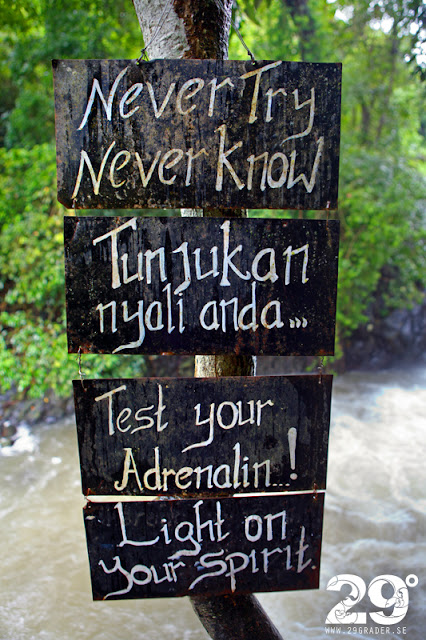 Never Try
Never know
Tunjukan
nyali anda...
Test your
Adrenalin...!
Light on
your Spirit.
29°
WWW.29GRADER.SE